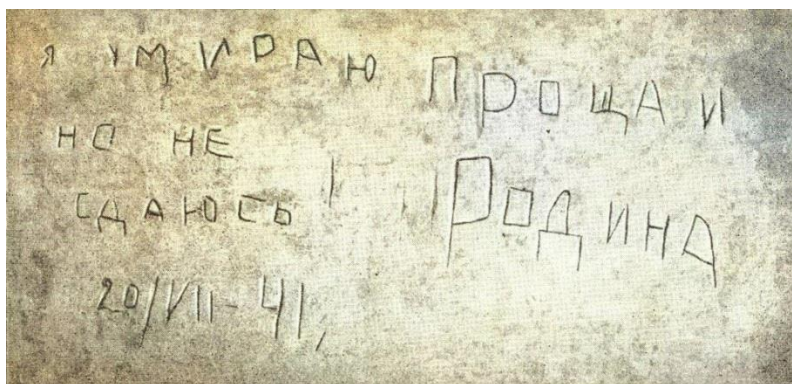 Я УМИРАЮ
НО НЕ
СДАЮСЬ!
ПРОЩАИ
РОДИНА
20/VII-41,